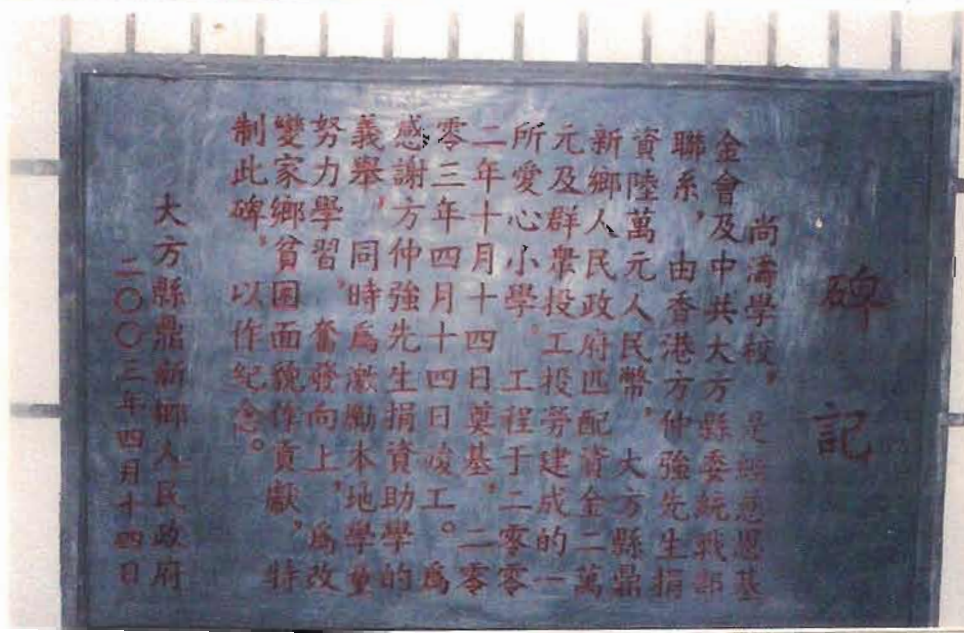 碑記
尚濤學校，是經恩基
金會及中共大方縣委統戰部
聯系，由香港方仲強先生捐
資陸萬元人民幣，大方縣鼎
新鄉人民政府匹配資金二萬
元及群眾投工投勞建成的一
所愛心小學。工程于二零零
二年十月十四日奠基，二零
零三年四月十四日竣工。爲
感謝方仲強先生捐資助學的
義舉，同時爲激勵本地學童
努力學習，奮發向上，爲改
變家鄉貧困面貌作貢獻，特
制此碑，以作紀念。
大方縣鼎新鄉人民政府
二〇〇三年四月十四日